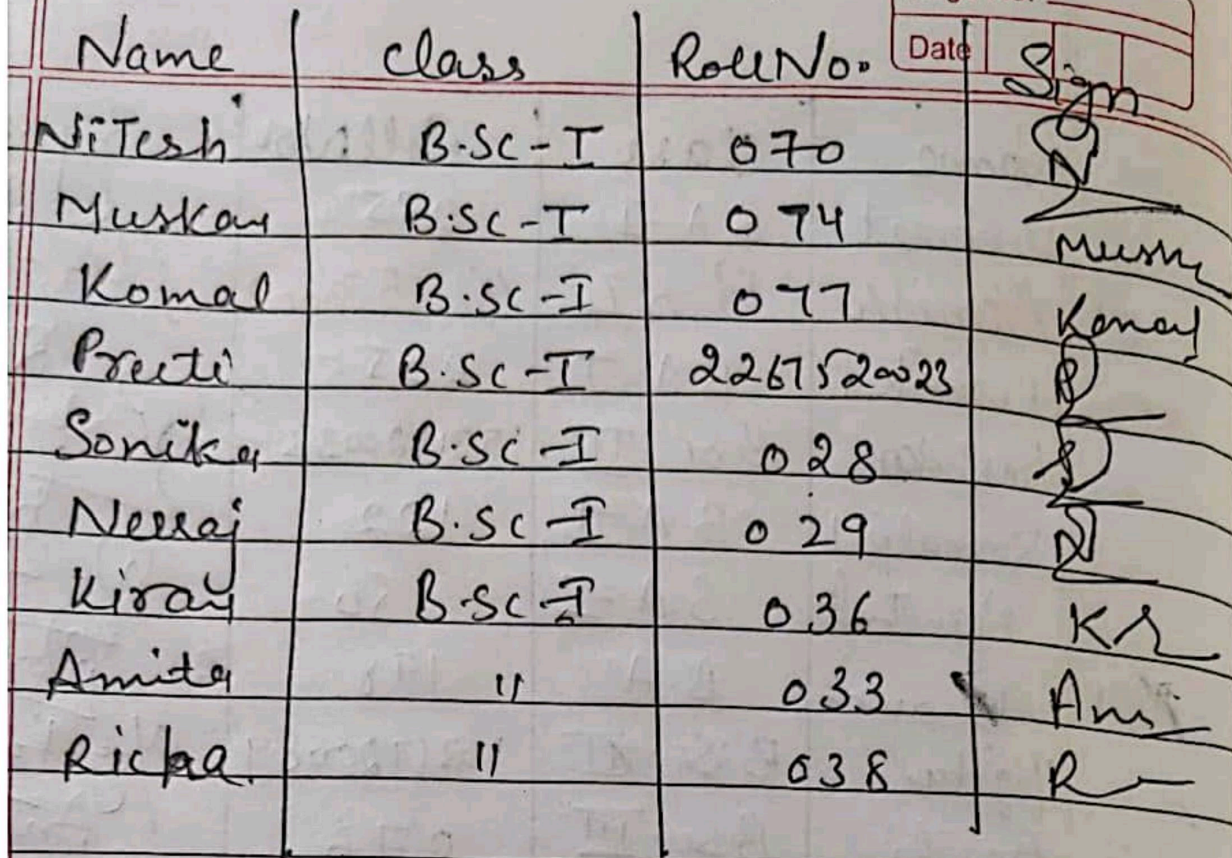 Date
Name class Roll No. Sign
NiTesh B.SC-I 070
Muskan B.SC-I 074 Mush
Komal B.SC-I 077 Komal
Preeti B.SC-I 2267520023 P
Sonika B.SC-I 028 S
Neeraj B.SC-I 029 N
Kiran B.SC-I 036 KR
Amita " 033 Ami
Richa. " 038 R